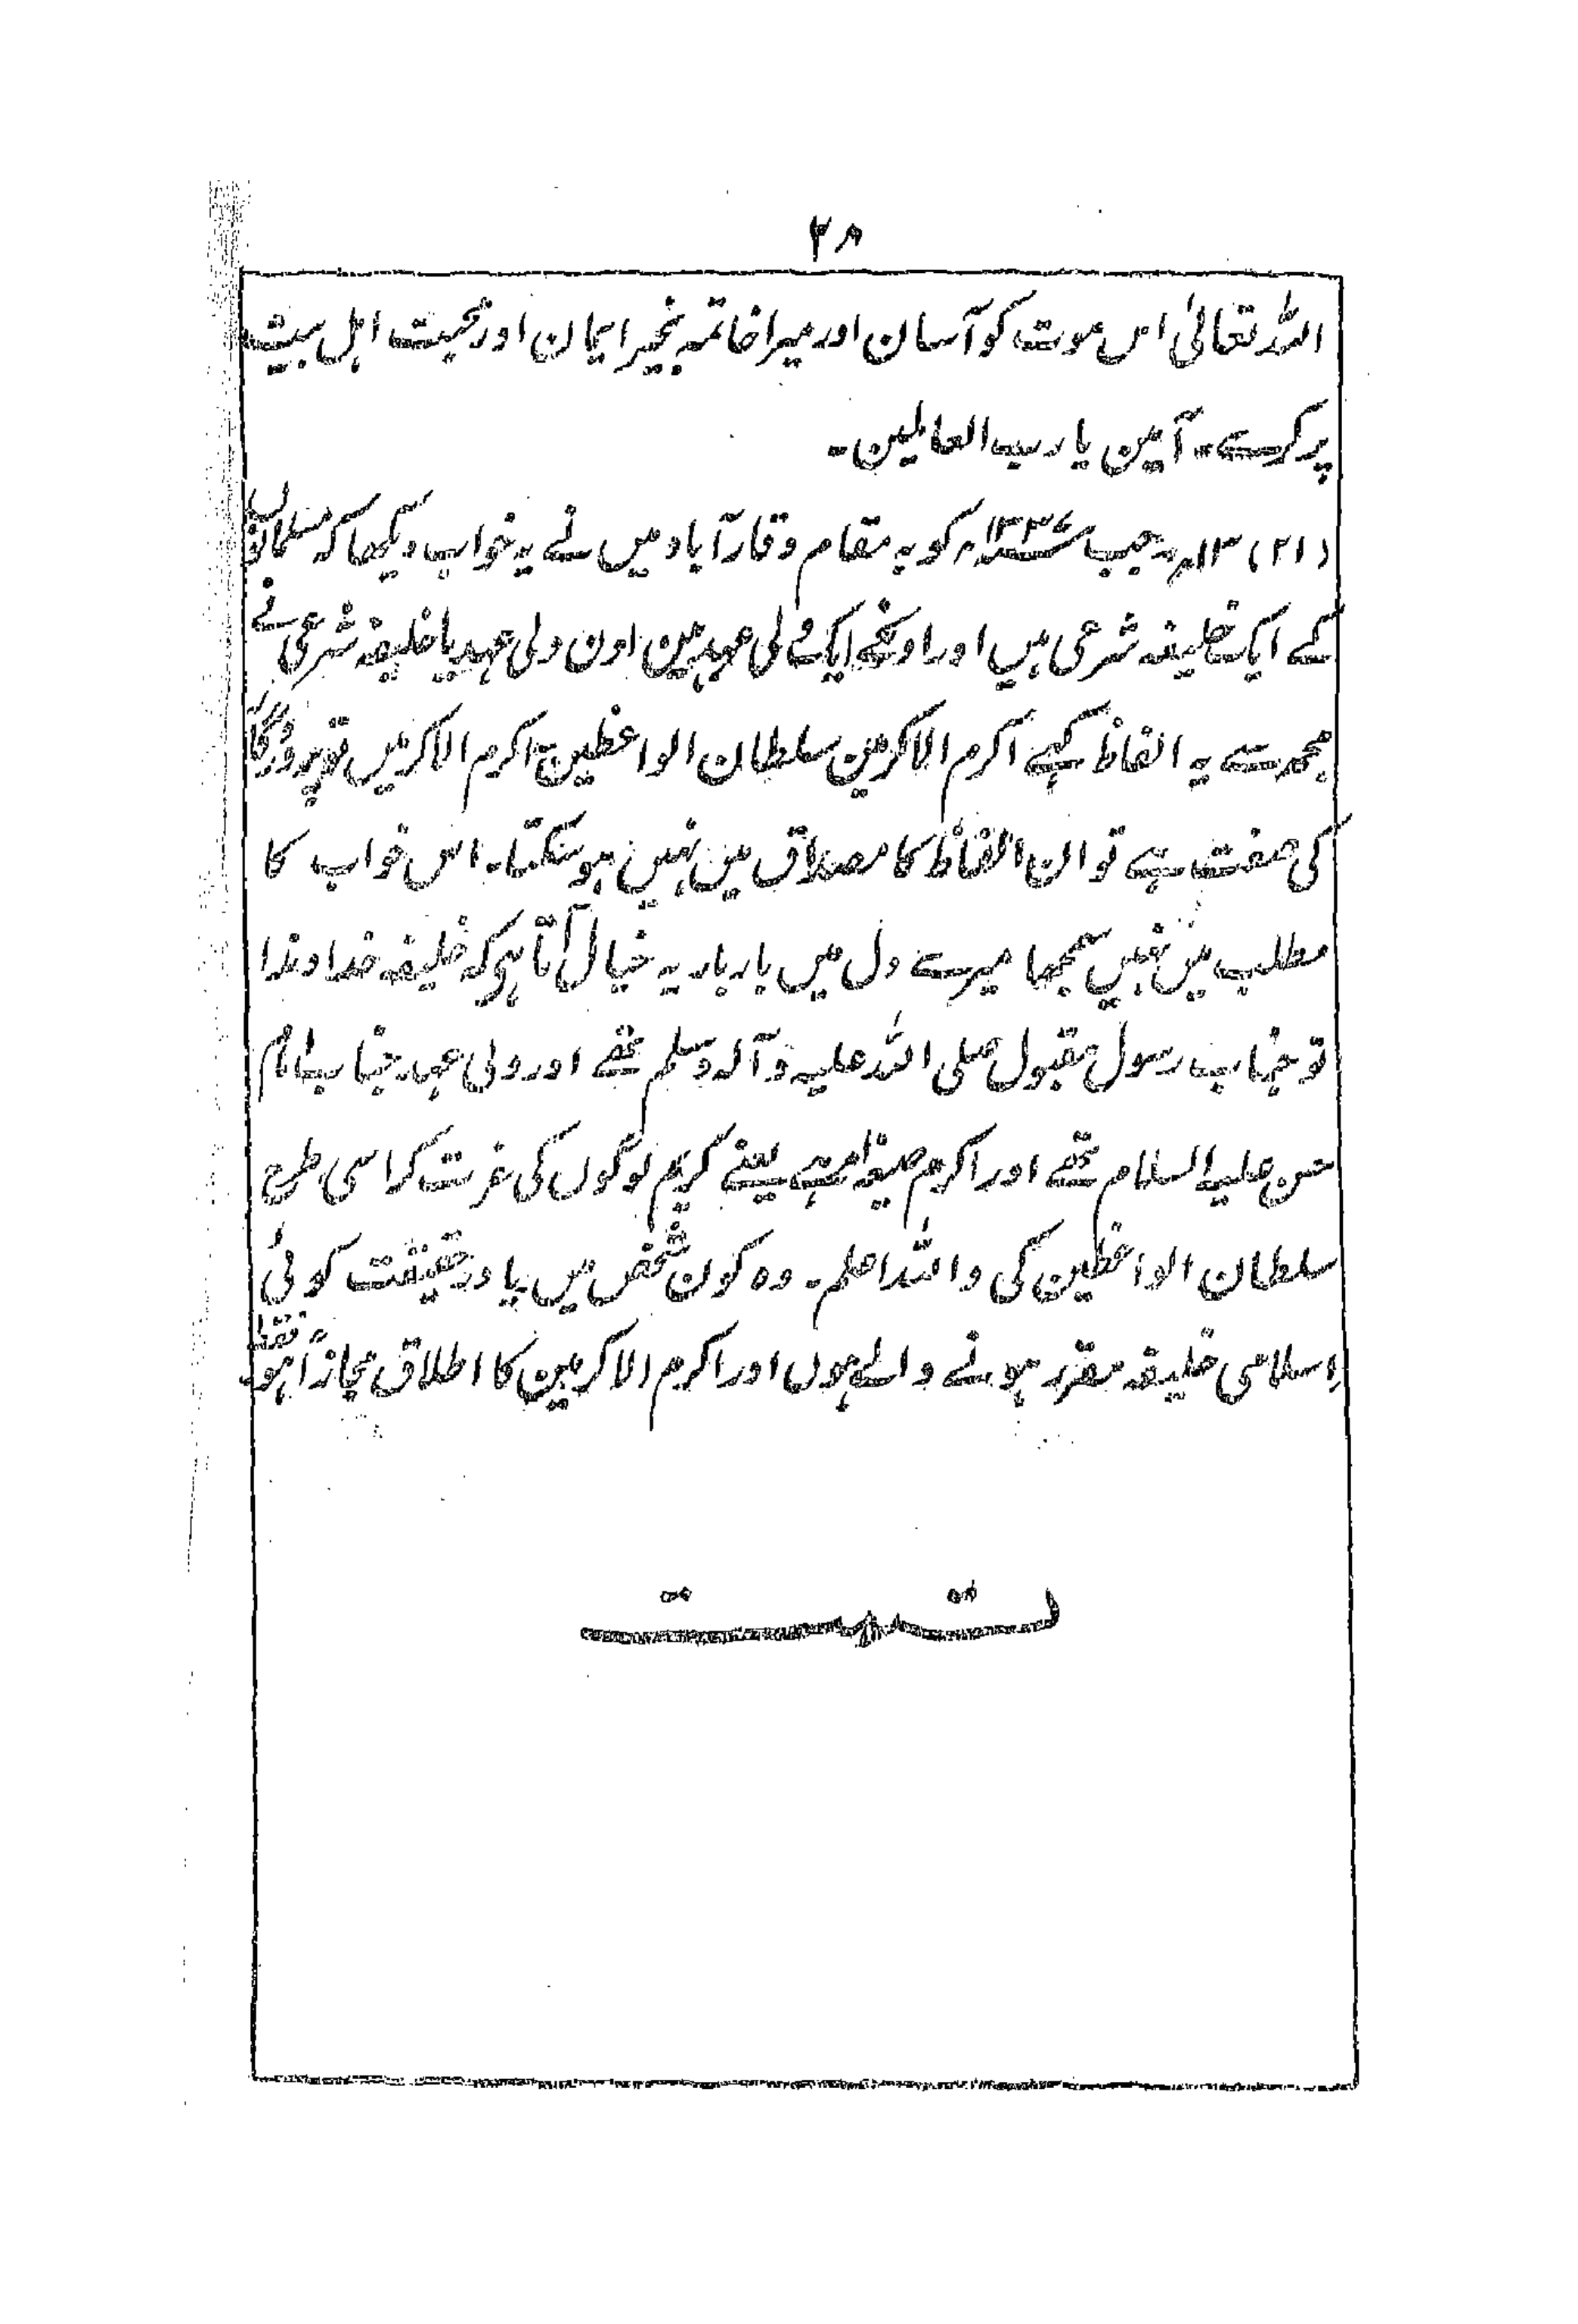 ۳۸
اللہ تعالیٰ اس موت کو آسان اور میرا خاتمہ بخیر ایمان اور محبت اہل بیت
پر کرے۔ آمین یا رب العالمین۔
(۲۱) ۱۳؍ رجب ۱۳۳۷ کو بہ مقام وقارآباد میں نے یہ خواب دیکھا کہ مسلمانوں
کے ایک خلیفہ شرعی ہیں اور اونکے ایک ولی عہد ہین اون ولی عہد یا خلیفہ شرعی نے
مجھ سے یہ الفاظ کہے اکرم الاکرمین سلطان الواعظین۔ اکرم الاکرمیں تو پروردگار
کی صفت ہے تو ان الفاظ کا مصداق میں نہیں ہوسکتا۔ اس خواب کا
مطلب میں نہیں سمجھا میرے دل میں بار بار یہ خیال آتا ہی کہ خلیفہ خداوندا
تو جناب رسول مقبول صلی اللہ علیہ وآلہ وسلم تھے اور ولی عہد جناب امام
حسن علیہ السلام تھے اور اکرم صیغہ امر ہے یعنے کریم لوگوں کی عزت کر اسی طرح
سلطان الواعظین کی واللہ اعلم۔ وہ کون شخص ہیں یا در حقیقت کوئی
اسلامی خلیفہ مقرر ہونے والے ہوں اور اکرم الاکرمین کا اطلاق مجازاً ہو۔ فقط
تمت